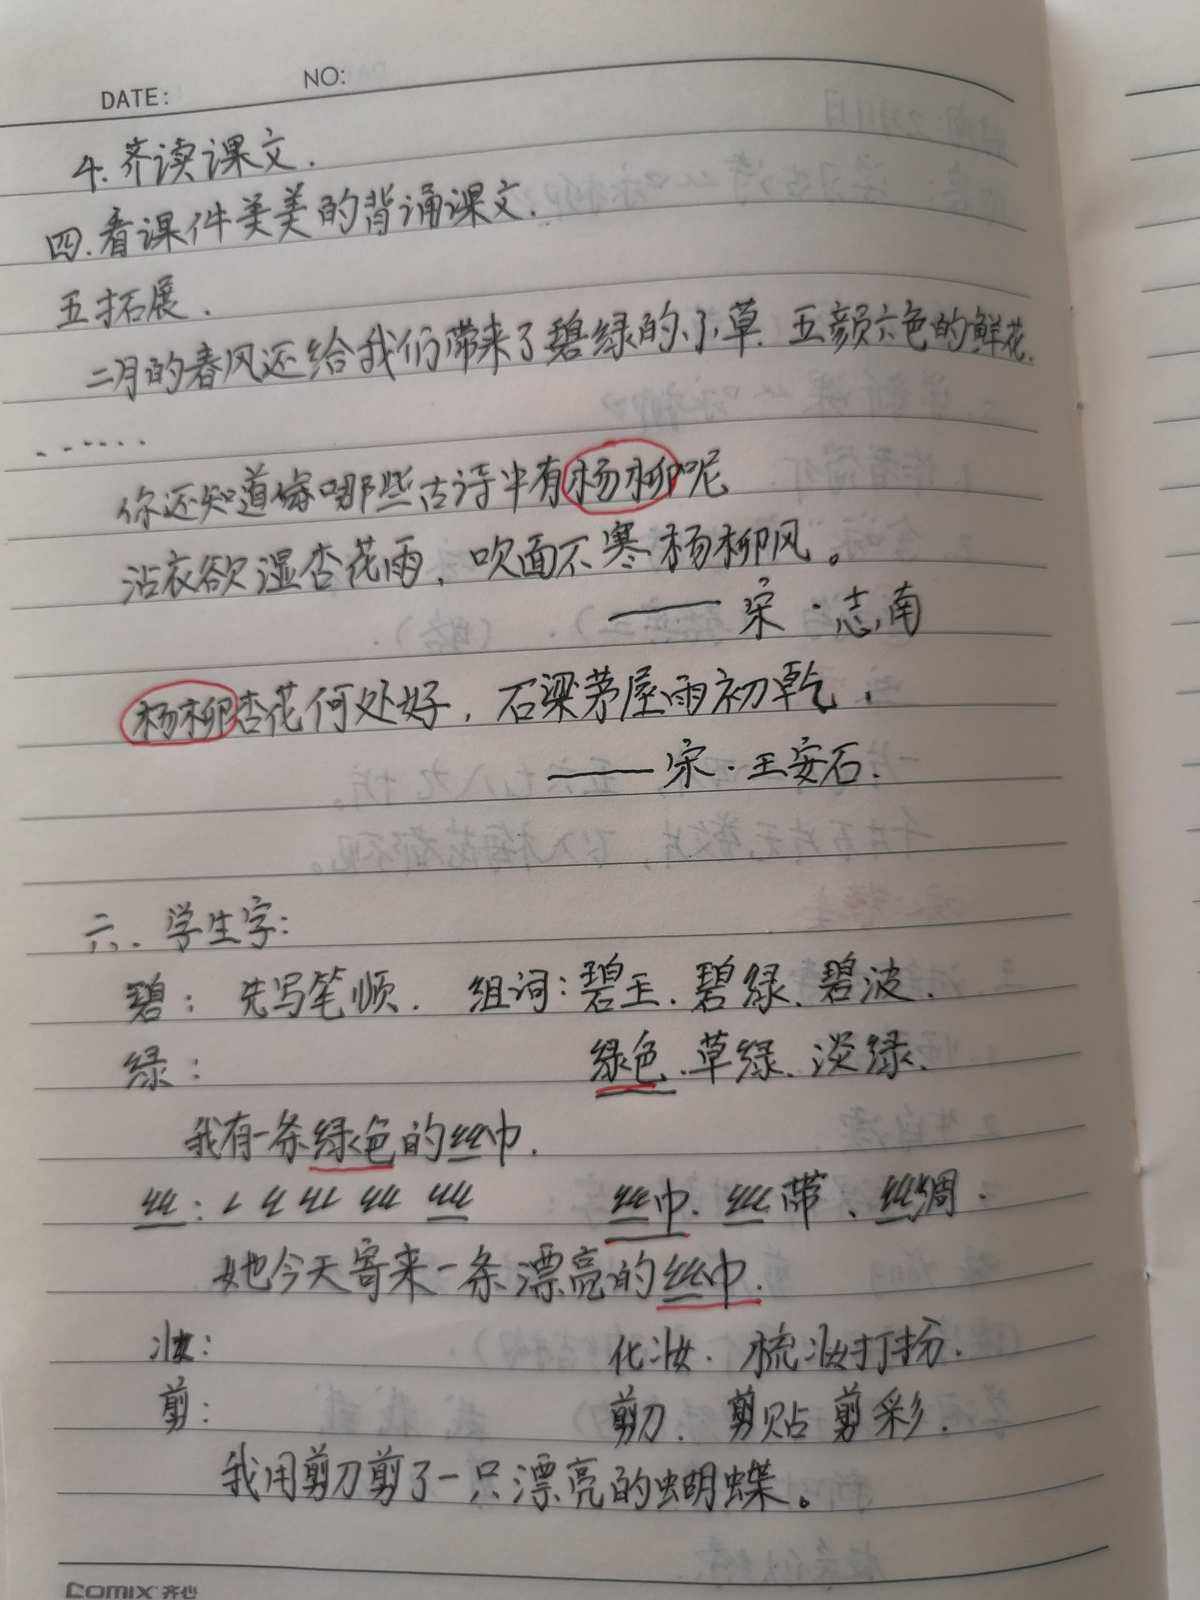 DATE: NO:
4. 齐读课文.
四. 看课件美美的背诵课文.
五拓展.
二月的春风还给我们带来了碧绿的小草. 五颜六色的鲜花.
......
你还知道哪些古诗中有杨柳呢
沾衣欲湿杏花雨, 吹面不寒杨柳风。
—— 宋·志南
杨柳杏花何处好, 石梁茅屋雨初乾.
—— 宋·王安石.
六. 学生字:
碧: 先写笔顺. 组词: 碧玉. 碧绿. 碧波.
绿: 绿色. 草绿. 淡绿.
我有一条绿色的丝巾.
丝: 丝巾. 丝带、丝绸.
她今天寄来一条漂亮的丝巾.
妆: 化妆. 梳妆打扮.
剪: 剪刀. 剪贴 剪彩.
我用剪刀剪了一只漂亮的蝴蝶。
Comix 齐心